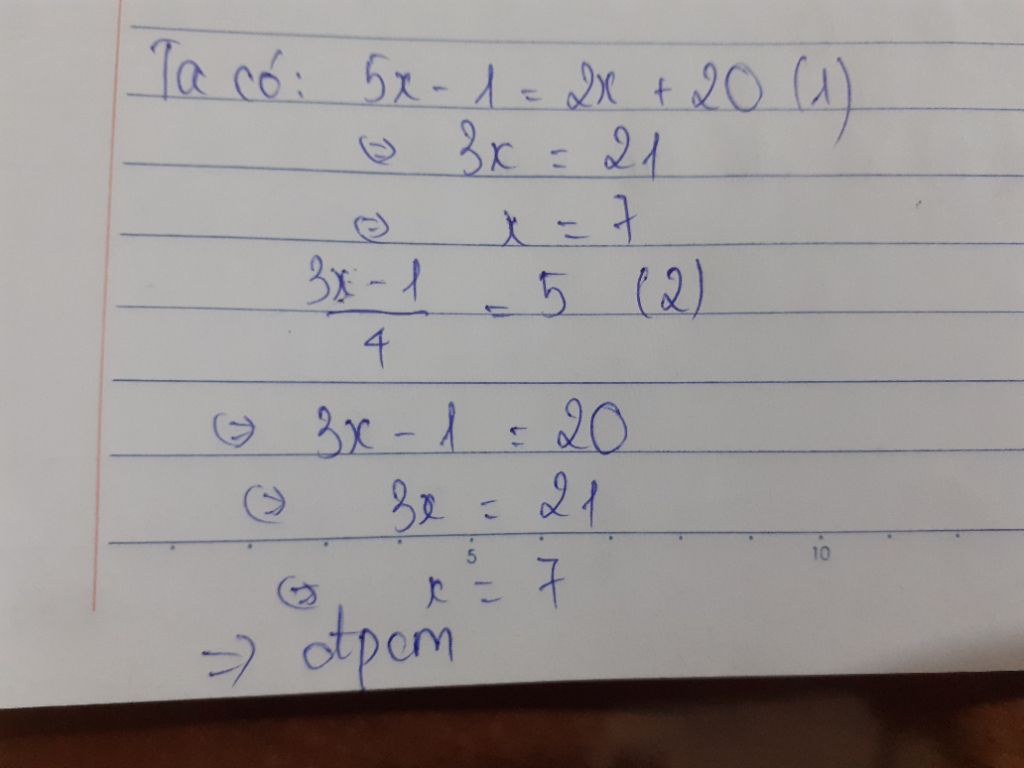 Ta có: 5x - 1 = 2x + 20 (1)
⇔ 3x = 21
⇔ x = 7
3x - 1
= 5 (2)
4
⇔ 3x - 1 = 20
⇔ 3x = 21
5 10
⇔ x = 7
⇒ đtpcm